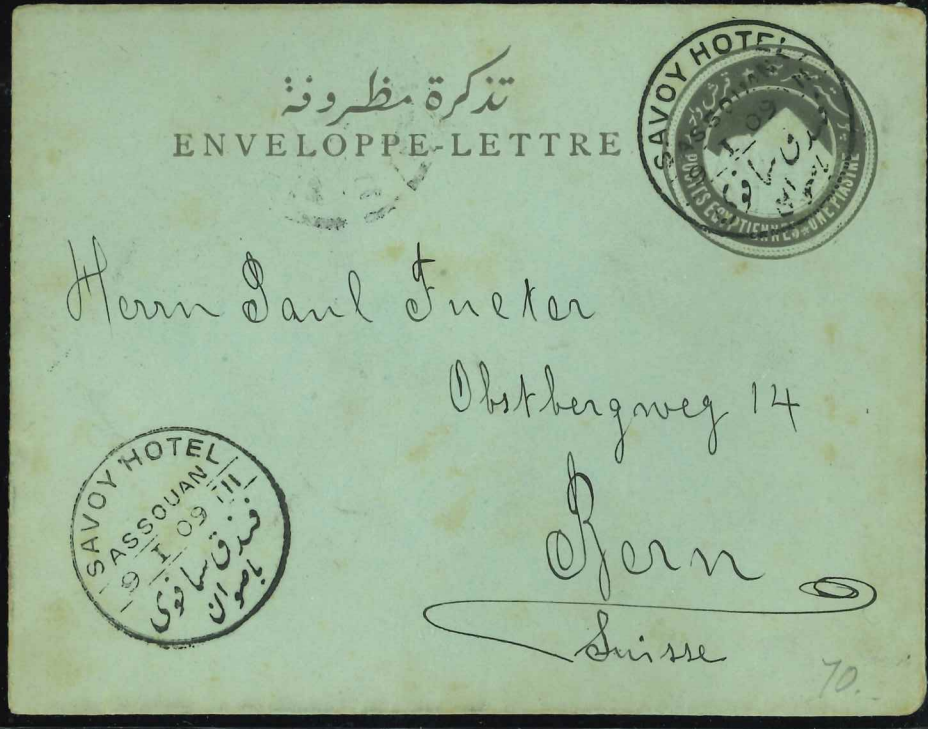 تذكرة مظروفة
ENVELOPPE-LETTRE
SAVOY HOTEL
ASSOUAN
I 09
فندق سافوى
باصوان
POSTES EGYPTIENNES ONE PIASTRE
Herrn Paul Fueter
Obstbergweg 14
Bern
Suisse
SAVOY HOTEL
ASSOUAN
9 I 09 III
فندق سافوى
باصوان
70.